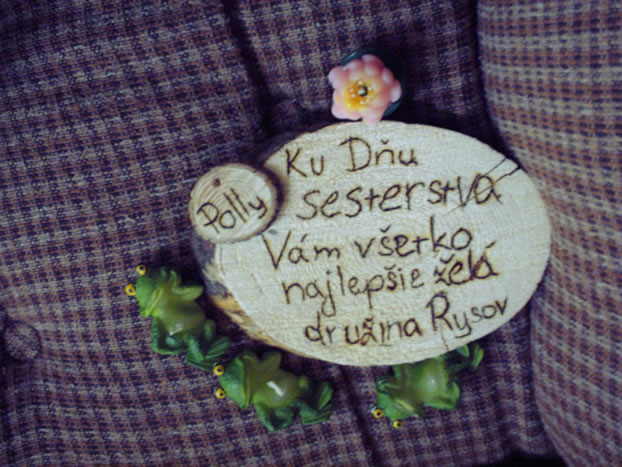 Polly
Ku Dňu
sesterstva
Vám všetko
najlepšie želá
družina Rysov